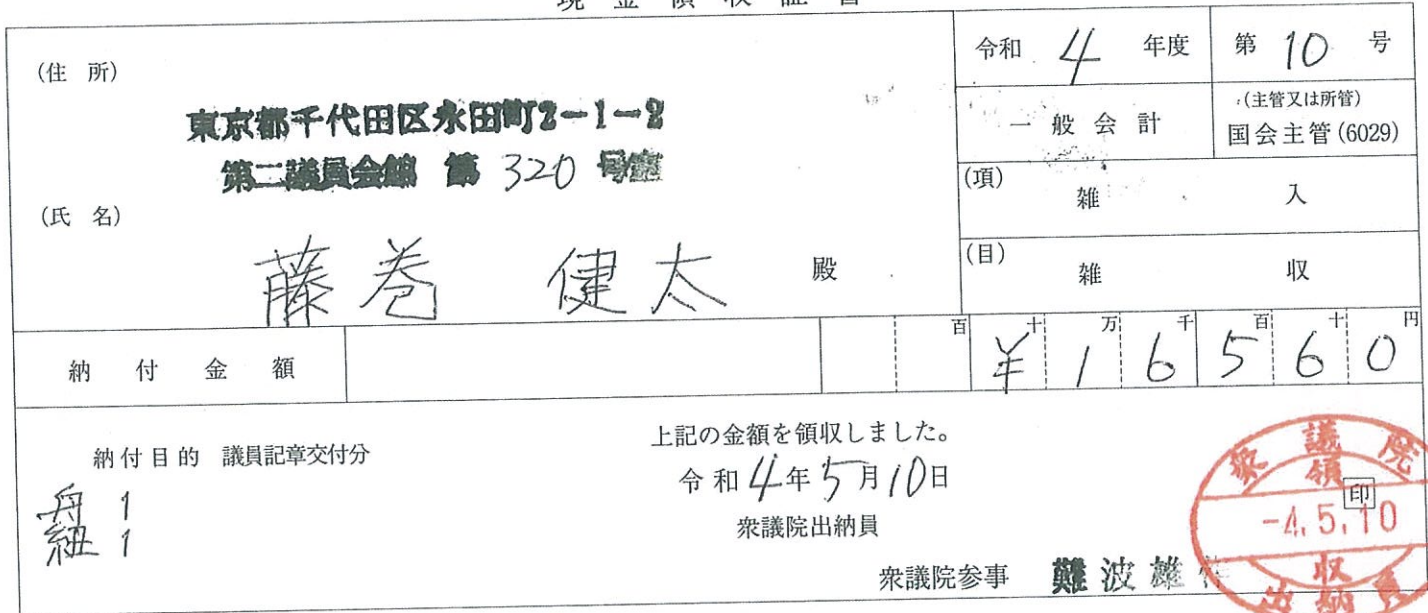 現金領収証書
(住所)
東京都千代田区永田町2-1-2
第二議員会館 第 320 号室
(氏名)
藤巻 健太 殿
令和 4 年度 第 10 号
一般会計
(主管又は所管)
国会主管(6029)
(項) 雑入
(目) 雑収
納付金額
百 十 万 千 百 十 円
¥ 1 6 5 6 0
納付目的 議員記章交付分
丹 1
紐 1
上記の金額を領収しました。
令和4年5月10日
衆議院出納員
衆議院参事 難波雄
印
衆議院
領
-4.5.10
収
出納員